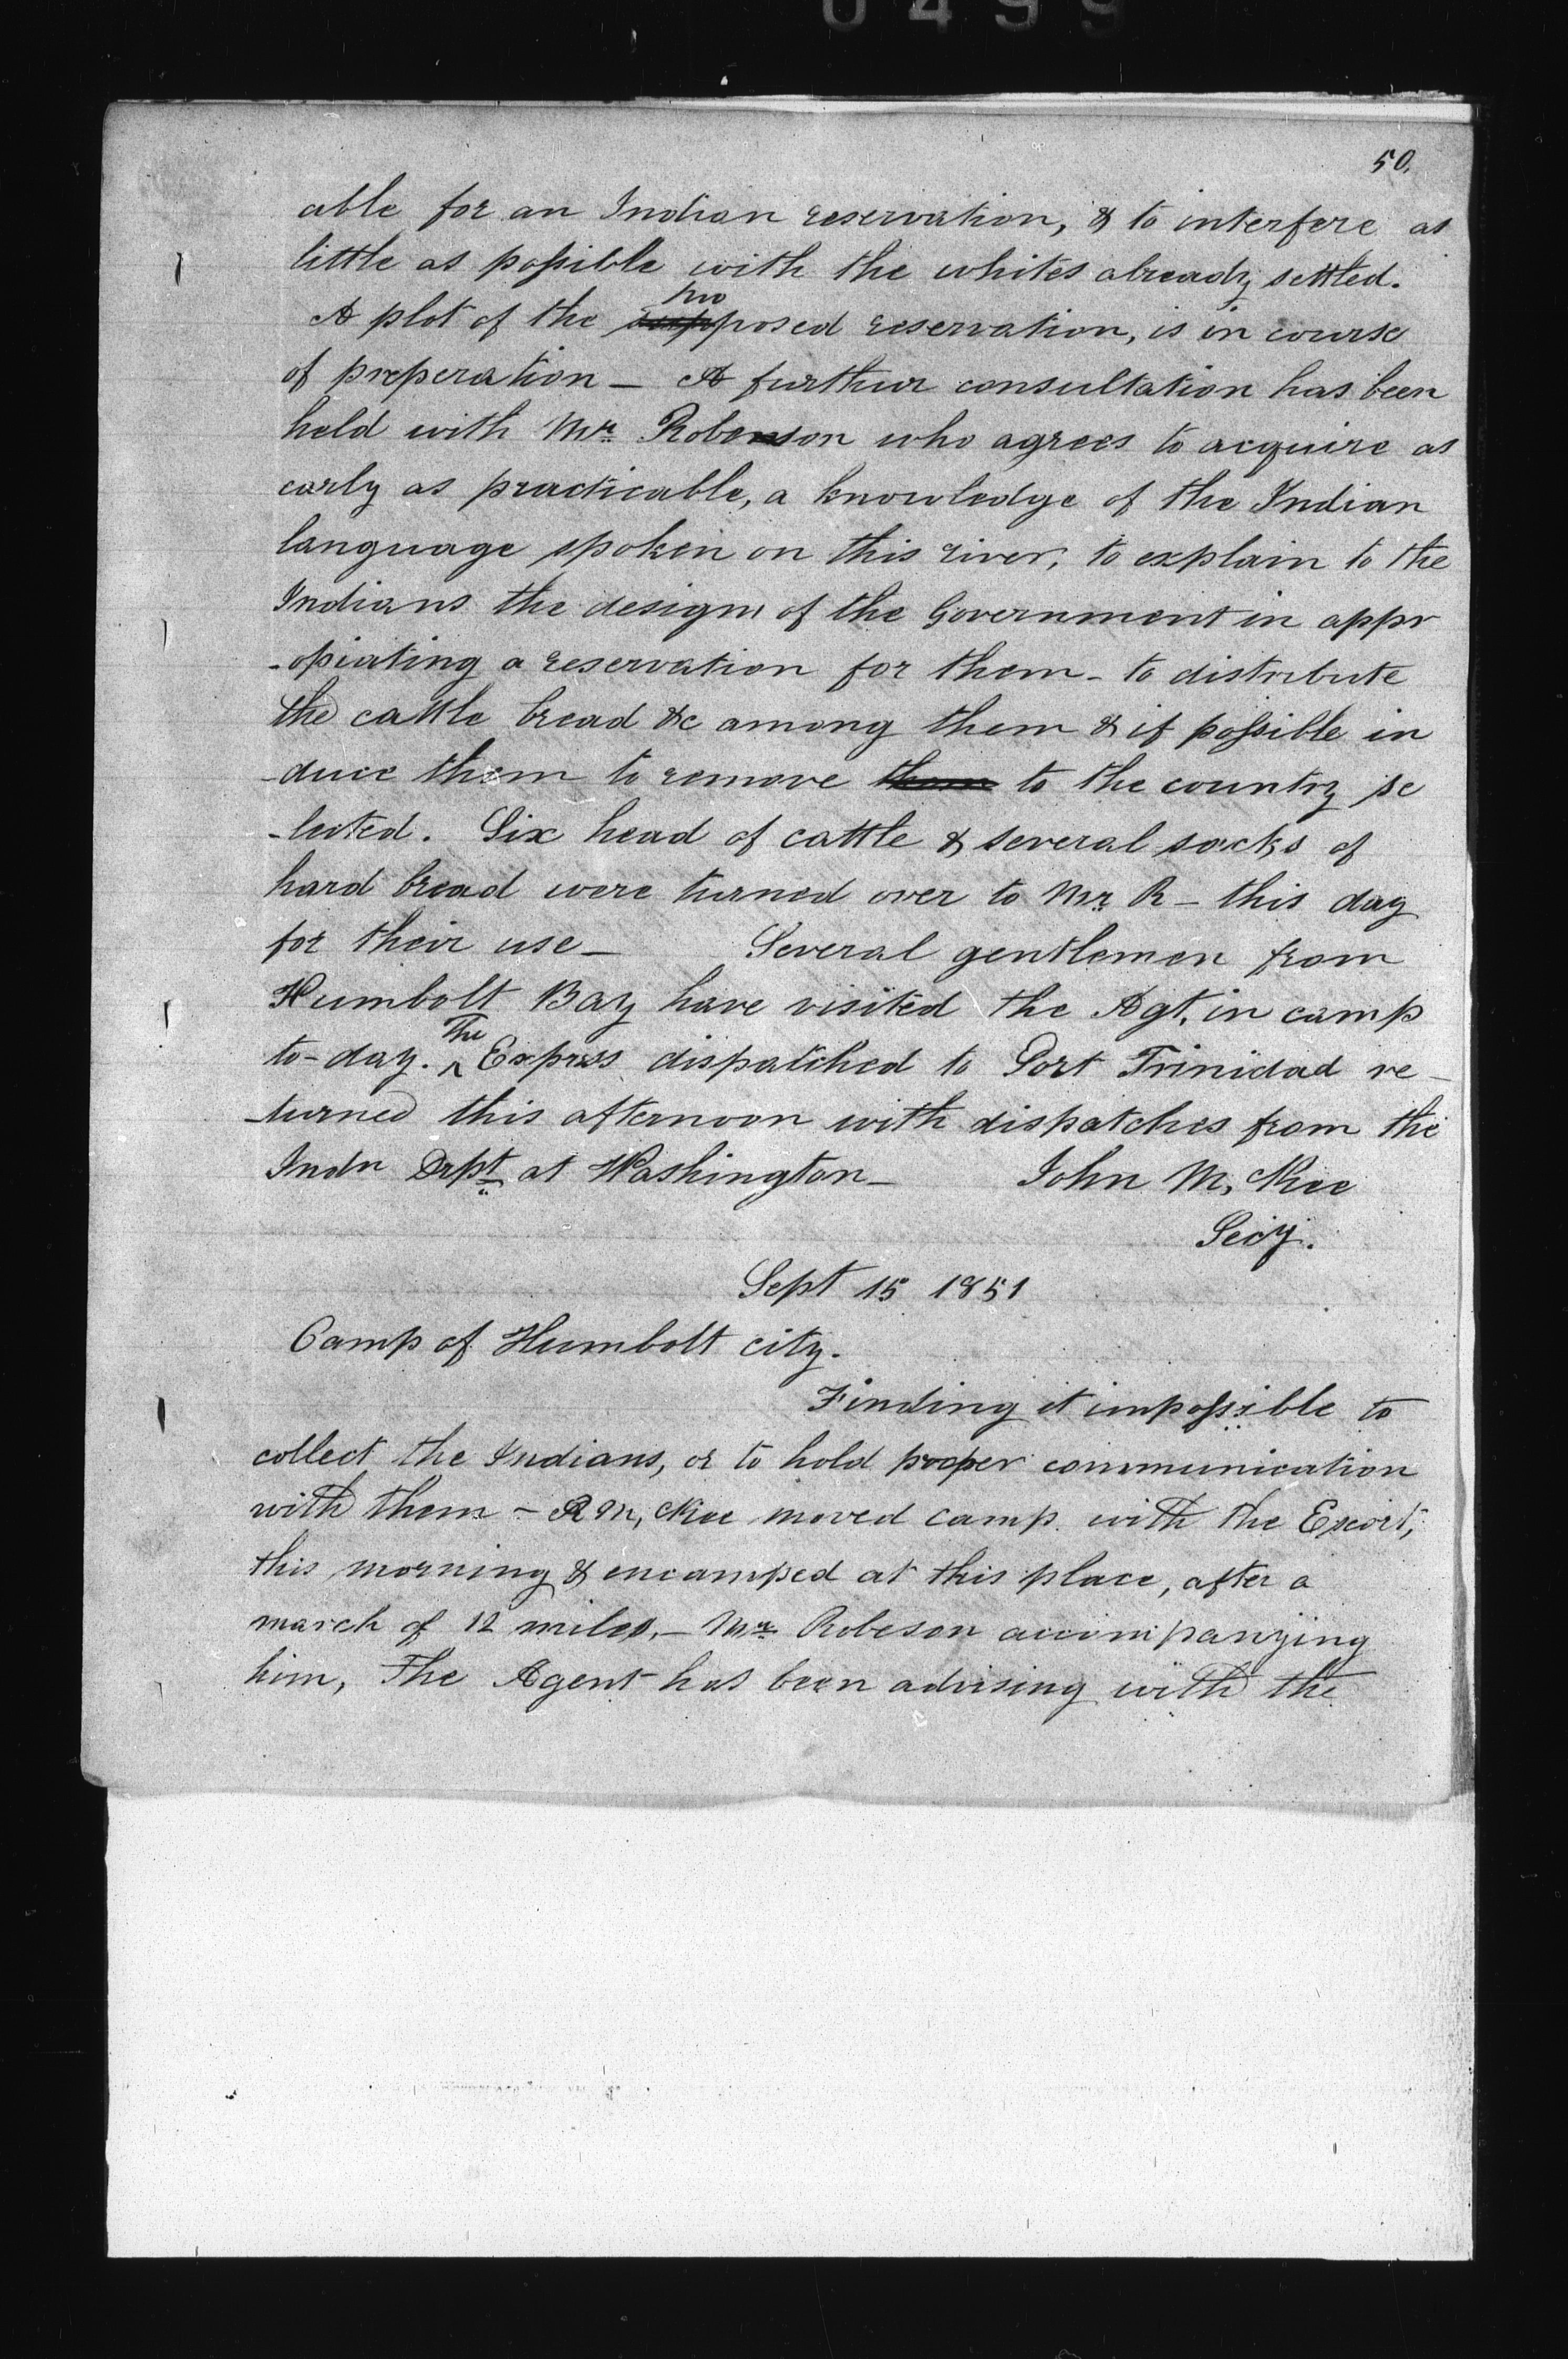 0499
50.
able for an Indian reservation, & to interfere as
little as possible with the whites already settled.
pro
A plot of the supposed reservation, is in course
of preperation — A furthur consultation has been
held with Mr. Robenson who agrees to acquire as
early as practicable, a knowledge of the Indian
language spoken on this river, to explain to the
Indians the designs of the Government in appr
-opiating a reservation for them - to distribute
the cattle bread &c among them & if possible in
-duce them to remove them to the country se
-lected. Six head of cattle & several sacks of
hard bread were turned over to Mr. R — this day
for their use — Several gentlemen from
Humbolt Bay have visited the Agt. in camp
The
to-day. ^ Express dispatched to Port Trinidad re-
-turned this afternoon with dispatches from the
Indn Dept. at Washington — John M, Kee
Secy.
Sept 15 1851
Camp of Humbolt city.
Finding it impossible to
collect the Indians, or to hold proper communication
with them - R M, Kee moved camp with the Escort,
this morning & encamped at this place, after a
march of 12 miles, — Mr. Robeson accompanying
him, The Agent has been advising with the